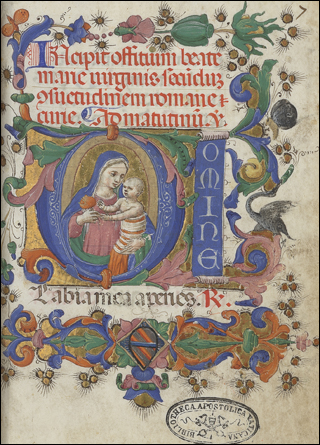 INcipit offitium beate
marie uirginis secūduz
ꝯsuetudinem romane
curie. Ad matutinū. V.
DOMINE
Labia mea aperies. R.
BIBLIOTHECA APOSTOLICA VATICANA